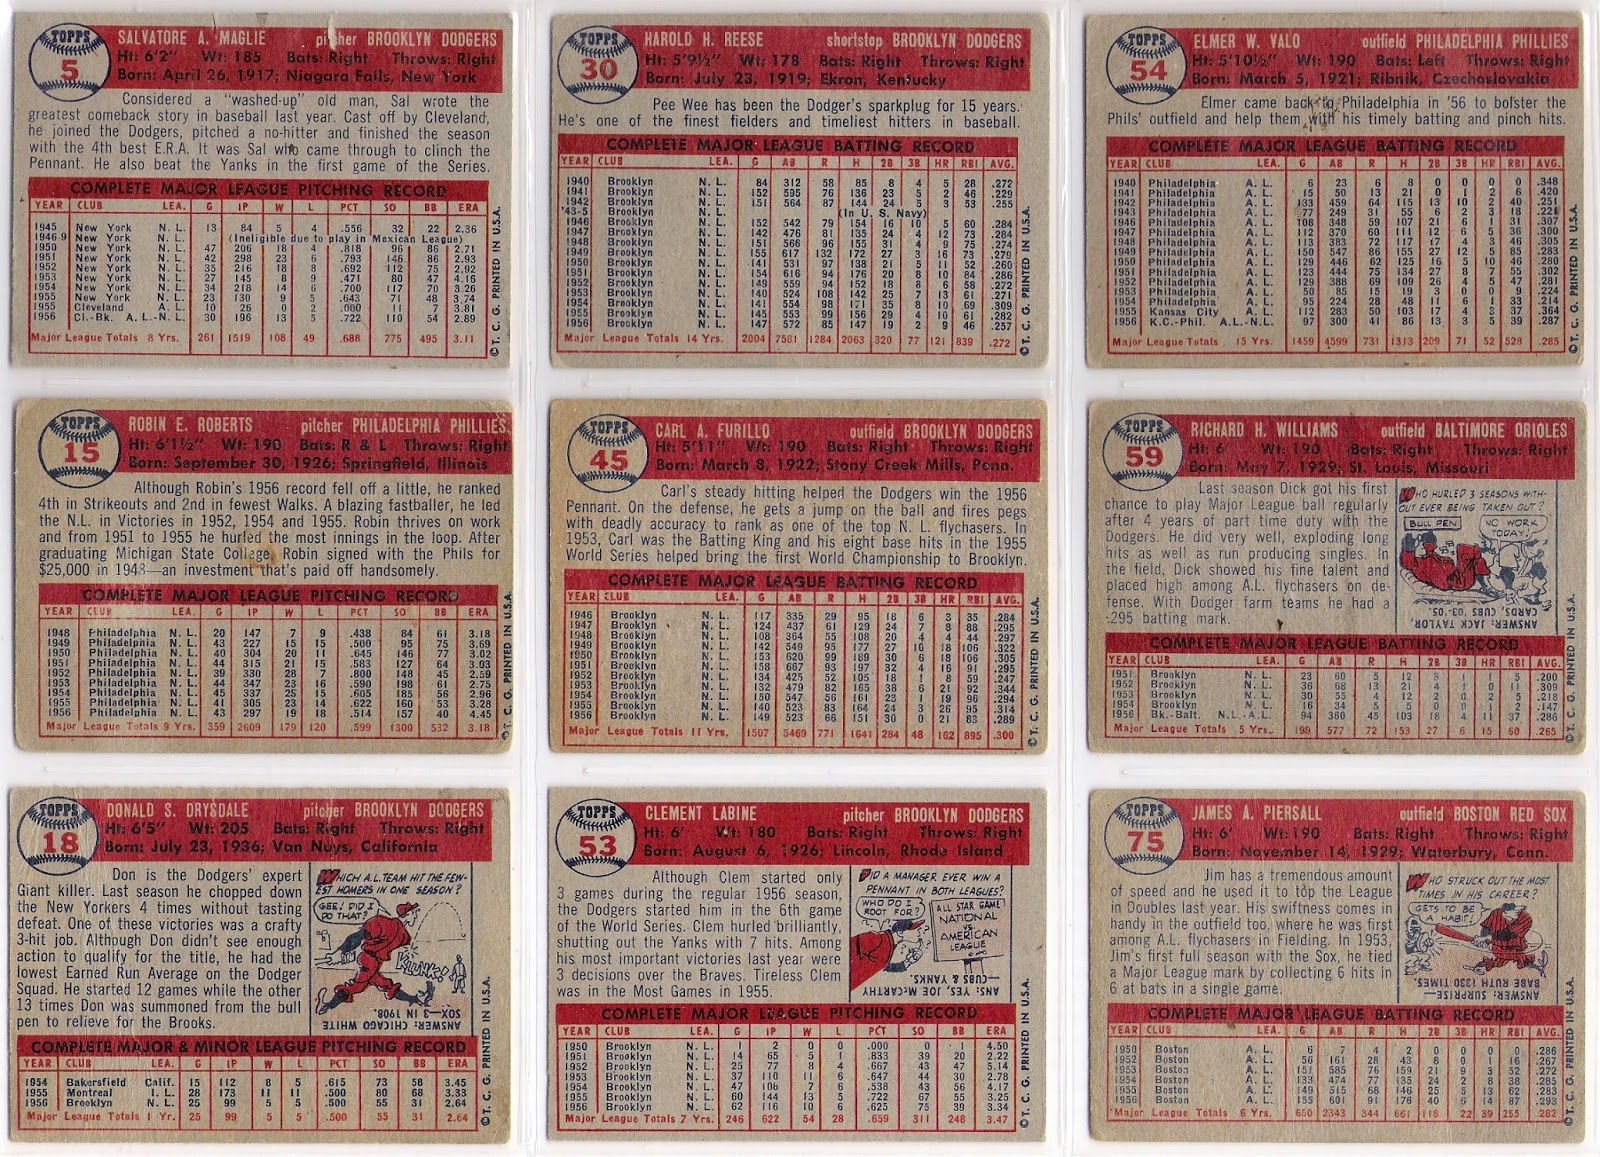 TOPPS
5
SALVATORE A. MAGLIE pitcher BROOKLYN DODGERS
Ht: 6'2" Wt: 185 Bats: Right Throws: Right
Born: April 26, 1917; Niagara Falls, New York
Considered a "washed-up" old man, Sal wrote the
greatest comeback story in baseball last year. Cast off by Cleveland,
he joined the Dodgers, pitched a no-hitter and finished the season
with the 4th best E.R.A. It was Sal who came through to clinch the
Pennant. He also beat the Yanks in the first game of the Series.
COMPLETE MAJOR LEAGUE PITCHING RECORD
YEAR CLUB LEA. G IP W L PCT SO BB ERA
1945 New York N. L. 13 84 5 4 .556 32 22 2.36
1946-9 New York N. L. (Ineligible due to play in Mexican League)
1950 New York N. L. 47 206 18 4 .818 96 86 2.71
1951 New York N. L. 42 298 23 6 .793 146 86 2.93
1952 New York N. L. 35 216 18 8 .692 112 75 2.92
1953 New York N. L. 27 145 8 9 .471 80 47 4.16
1954 New York N. L. 34 218 14 6 .700 117 70 3.26
1955 New York N. L. 23 130 9 5 .643 71 48 3.74
1955 Cleveland A. L. 10 26 0 2 .000 11 7 3.81
1956 Cl.-Bk. A. L.-N. L. 30 196 13 5 .722 110 54 2.89
Major League Totals 8 Yrs. 261 1519 108 49 .688 775 495 3.11
© T. C. G. PRINTED IN U.S.A.
TOPPS
30
HAROLD H. REESE shortstop BROOKLYN DODGERS
Ht: 5'9½" Wt: 178 Bats: Right Throws: Right
Born: July 23, 1919; Ekron, Kentucky
Pee Wee has been the Dodger's sparkplug for 15 years.
He's one of the finest fielders and timeliest hitters in baseball.
COMPLETE MAJOR LEAGUE BATTING RECORD
YEAR CLUB LEA. G AB R H 2B 3B HR RBI AVG.
1940 Brooklyn N. L. 84 312 58 85 8 4 5 28 .272
1941 Brooklyn N. L. 152 595 76 136 23 5 2 46 .229
1942 Brooklyn N. L. 151 564 87 144 24 5 3 53 .255
'43-5 Brooklyn N. L. (In U. S. Navy)
1946 Brooklyn N. L. 152 542 79 154 16 10 5 60 .284
1947 Brooklyn N. L. 142 476 81 135 24 4 12 73 .284
1948 Brooklyn N. L. 151 566 96 155 31 4 9 75 .274
1949 Brooklyn N. L. 155 617 132 172 27 3 16 73 .279
1950 Brooklyn N. L. 141 531 97 138 21 5 11 52 .260
1951 Brooklyn N. L. 154 616 94 176 20 8 10 84 .286
1952 Brooklyn N. L. 149 559 94 152 18 8 6 58 .272
1953 Brooklyn N. L. 140 524 108 142 25 7 13 61 .271
1954 Brooklyn N. L. 141 554 98 171 35 8 10 69 .309
1955 Brooklyn N. L. 145 553 99 156 29 4 10 61 .282
1956 Brooklyn N. L. 147 572 85 147 19 2 9 46 .257
Major League Totals 14 Yrs. 2004 7581 1284 2063 320 77 121 839 .272
© T. C. G. PRINTED IN U.S.A.
TOPPS
54
ELMER W. VALO outfield PHILADELPHIA PHILLIES
Ht: 5'10½" Wt: 190 Bats: Left Throws: Right
Born: March 5, 1921; Ribnik, Czechoslovakia
Elmer came back to Philadelphia in '56 to bolster the
Phils' outfield and help them with his timely batting and pinch hits.
COMPLETE MAJOR LEAGUE BATTING RECORD
YEAR CLUB LEA. G AB R H 2B 3B HR RBI AVG.
1940 Philadelphia A. L. 6 23 6 8 0 0 0 0 .348
1941 Philadelphia A. L. 15 50 13 21 0 1 2 6 .420
1942 Philadelphia A. L. 133 459 64 115 13 10 2 40 .251
1943 Philadelphia A. L. 77 249 31 55 6 2 3 18 .221
1946 Philadelphia A. L. 108 348 59 107 21 6 1 31 .307
1947 Philadelphia A. L. 112 370 60 111 12 6 5 36 .300
1948 Philadelphia A. L. 113 383 72 117 17 4 3 46 .305
1949 Philadelphia A. L. 150 547 86 155 27 12 5 85 .283
1950 Philadelphia A. L. 129 446 62 125 16 5 10 46 .280
1951 Philadelphia A. L. 123 444 75 134 27 8 7 55 .302
1952 Philadelphia A. L. 129 388 69 109 26 4 5 47 .281
1953 Philadelphia A. L. 50 85 15 19 3 0 0 9 .224
1954 Philadelphia A. L. 95 224 28 48 11 6 1 33 .214
1955 Kansas City A. L. 112 283 50 103 17 4 3 37 .364
1956 K.C.-Phil. A.L.-N.L. 97 300 41 86 13 3 5 39 .287
Major League Totals 15 Yrs. 1459 4599 731 1313 209 71 52 528 .285
© T. C. G. PRINTED IN U.S.A.
TOPPS
15
ROBIN E. ROBERTS pitcher PHILADELPHIA PHILLIES
Ht: 6'1½" Wt: 190 Bats: R & L Throws: Right
Born: September 30, 1926; Springfield, Illinois
Although Robin's 1956 record fell off a little, he ranked
4th in Strikeouts and 2nd in fewest Walks. A blazing fastballer, he led
the N.L. in Victories in 1952, 1954 and 1955. Robin thrives on work
and from 1951 to 1955 he hurled the most innings in the loop. After
graduating Michigan State College, Robin signed with the Phils for
$25,000 in 1948—an investment that's paid off handsomely.
COMPLETE MAJOR LEAGUE PITCHING RECORD
YEAR CLUB LEA. G IP W L PCT SO BB ERA
1948 Philadelphia N. L. 20 147 7 9 .438 84 61 3.18
1949 Philadelphia N. L. 43 227 15 15 .500 95 75 3.69
1950 Philadelphia N. L. 40 304 20 11 .645 146 77 3.02
1951 Philadelphia N. L. 44 315 21 15 .583 127 64 3.03
1952 Philadelphia N. L. 39 330 28 7 .800 148 45 2.59
1953 Philadelphia N. L. 44 347 23 16 .590 198 61 2.75
1954 Philadelphia N. L. 45 337 23 15 .605 185 56 2.96
1955 Philadelphia N. L. 41 305 23 14 .622 160 53 3.28
1956 Philadelphia N. L. 43 297 19 18 .514 157 40 4.45
Major League Totals 9 Yrs. 359 2609 179 120 .599 1300 532 3.18
© T. C. G. PRINTED IN U.S.A.
TOPPS
45
CARL A. FURILLO outfield BROOKLYN DODGERS
Ht: 5'11" Wt: 190 Bats: Right Throws: Right
Born: March 8, 1922; Stony Creek Mills, Penn.
Carl's steady hitting helped the Dodgers win the 1956
Pennant. On the defense, he gets a jump on the ball and fires pegs
with deadly accuracy to rank as one of the top N. L. flychasers. In
1953, Carl was the Batting King and his eight base hits in the 1955
World Series helped bring the first World Championship to Brooklyn.
COMPLETE MAJOR LEAGUE BATTING RECORD
YEAR CLUB LEA. G AB R H 2B 3B HR RBI AVG.
1946 Brooklyn N. L. 117 335 29 95 18 6 3 35 .284
1947 Brooklyn N. L. 124 437 61 129 24 7 8 88 .295
1948 Brooklyn N. L. 108 364 55 108 20 4 4 44 .297
1949 Brooklyn N. L. 142 549 95 177 27 10 18 106 .322
1950 Brooklyn N. L. 153 620 99 189 30 6 18 106 .305
1951 Brooklyn N. L. 158 667 93 197 32 4 16 91 .295
1952 Brooklyn N. L. 134 425 52 105 18 1 8 59 .247
1953 Brooklyn N. L. 132 479 82 165 38 6 21 92 .344
1954 Brooklyn N. L. 150 547 56 161 23 1 19 96 .294
1955 Brooklyn N. L. 140 523 83 164 24 3 26 95 .314
1956 Brooklyn N. L. 149 523 66 151 30 0 21 83 .289
Major League Totals 11 Yrs. 1507 5469 771 1641 284 48 162 895 .300
© T. C. G. PRINTED IN U.S.A.
TOPPS
59
RICHARD H. WILLIAMS outfield BALTIMORE ORIOLES
Ht: 6' Wt: 190 Bats: Right Throws: Right
Born: May 7, 1929; St. Louis, Missouri
Last season Dick got his first
chance to play Major League ball regularly
after 4 years of part time duty with the
Dodgers. He did very well, exploding long
hits as well as run producing singles. In
the field, Dick showed his fine talent and
placed high among A.L. flychasers on de-
fense. With Dodger farm teams he had a
.295 batting mark.
WHO HURLED 3 SEASONS WITH-
OUT EVER BEING TAKEN OUT?
BULL PEN
NO WORK
TODAY!
ANSWER: JACK TAYLOR,
CARDS, CUBS '03-'05.
COMPLETE MAJOR LEAGUE BATTING RECORD
YEAR CLUB LEA. G AB R H 2B 3B HR RBI AVG.
1951 Brooklyn N. L. 23 60 5 12 3 1 1 5 .200
1952 Brooklyn N. L. 36 68 13 21 4 1 0 11 .309
1953 Brooklyn N. L. 30 55 4 12 2 0 2 5 .218
1954 Brooklyn N. L. 16 34 5 5 0 0 1 2 .147
1956 Bk.-Balt. N.L.-A.L. 94 360 45 103 18 4 11 37 .286
Major League Totals 5 Yrs. 199 577 72 153 27 6 15 60 .265
© T. C. G. PRINTED IN U.S.A.
TOPPS
18
DONALD S. DRYSDALE pitcher BROOKLYN DODGERS
Ht: 6'5" Wt: 205 Bats: Right Throws: Right
Born: July 23, 1936; Van Nuys, California
Don is the Dodgers' expert
Giant killer. Last season he chopped down
the New Yorkers 4 times without tasting
defeat. One of these victories was a crafty
3-hit job. Although Don didn't see enough
action to qualify for the title, he had the
lowest Earned Run Average on the Dodger
Squad. He started 12 games while the other
13 times Don was summoned from the bull
pen to relieve for the Brooks.
WHICH A.L. TEAM HIT THE FEW-
EST HOMERS IN ONE SEASON?
GEE! DID I
DO THAT?
KLUNK!
ANSWER: CHICAGO WHITE
SOX—3 IN 1908.
COMPLETE MAJOR & MINOR LEAGUE PITCHING RECORD
YEAR CLUB LEA. G IP W L PCT SO BB ERA
1954 Bakersfield Calif. 15 112 8 5 .615 73 58 3.45
1955 Montreal I. L. 28 173 11 11 .500 80 68 3.33
1956 Brooklyn N. L. 25 99 5 5 .500 55 31 2.64
Major League Totals 1 Yr. 25 99 5 5 .500 55 31 2.64
© T. C. G. PRINTED IN U.S.A.
TOPPS
53
CLEMENT LABINE pitcher BROOKLYN DODGERS
Ht: 6' Wt: 180 Bats: Right Throws: Right
Born: August 6, 1926; Lincoln, Rhode Island
Although Clem started only
3 games during the regular 1956 season,
the Dodgers started him in the 6th game
of the World Series. Clem hurled brilliantly,
shutting out the Yanks with 7 hits. Among
his most important victories last year were
3 decisions over the Braves. Tireless Clem
was in the Most Games in 1955.
DID A MANAGER EVER WIN A
PENNANT IN BOTH LEAGUES?
WHO DO I
ROOT FOR?
ALL STAR GAME!
NATIONAL
VS.
AMERICAN
LEAGUE
ANS: YES, JOE McCARTHY
—CUBS & YANKS.
COMPLETE MAJOR LEAGUE PITCHING RECORD
YEAR CLUB LEA. G IP W L PCT SO BB ERA
1950 Brooklyn N. L. 1 2 0 0 .000 0 1 4.50
1951 Brooklyn N. L. 14 65 5 1 .833 39 20 2.22
1952 Brooklyn N. L. 25 77 8 4 .667 43 47 5.14
1953 Brooklyn N. L. 37 110 11 6 .647 44 30 2.78
1954 Brooklyn N. L. 47 108 7 6 .538 43 56 4.17
1955 Brooklyn N. L. 60 144 13 5 .722 67 55 3.25
1956 Brooklyn N. L. 62 116 10 6 .625 75 39 3.34
Major League Totals 7 Yrs. 246 622 54 28 .659 311 248 3.47
© T. C. G. PRINTED IN U.S.A.
TOPPS
75
JAMES A. PIERSALL outfield BOSTON RED SOX
Ht: 6' Wt: 190 Bats: Right Throws: Right
Born: November 14, 1929; Waterbury, Conn.
Jim has a tremendous amount
of speed and he used it to top the League
in Doubles last year. His swiftness comes in
handy in the outfield too, where he was first
among A.L. flychasers in Fielding. In 1953,
Jim's first full season with the Sox, he tied
a Major League mark by collecting 6 hits in
6 at bats in a single game.
WHO STRUCK OUT THE MOST
TIMES IN HIS CAREER?
GETS TO BE
A HABIT!
ANSWER: SURPRISE—
BABE RUTH (1330) TIMES.
COMPLETE MAJOR LEAGUE BATTING RECORD
YEAR CLUB LEA. G AB R H 2B 3B HR RBI AVG.
1950 Boston A. L. 6 7 4 2 0 0 0 0 .286
1952 Boston A. L. 56 161 28 43 8 0 1 16 .267
1953 Boston A. L. 151 585 76 159 21 9 3 52 .272
1954 Boston A. L. 133 474 77 135 24 2 8 38 .285
1955 Boston A. L. 149 515 68 146 25 5 13 62 .283
1956 Boston A. L. 155 601 91 176 40 6 14 87 .293
Major League Totals 6 Yrs. 650 2343 344 661 118 22 39 255 .282
© T. C. G. PRINTED IN U.S.A.